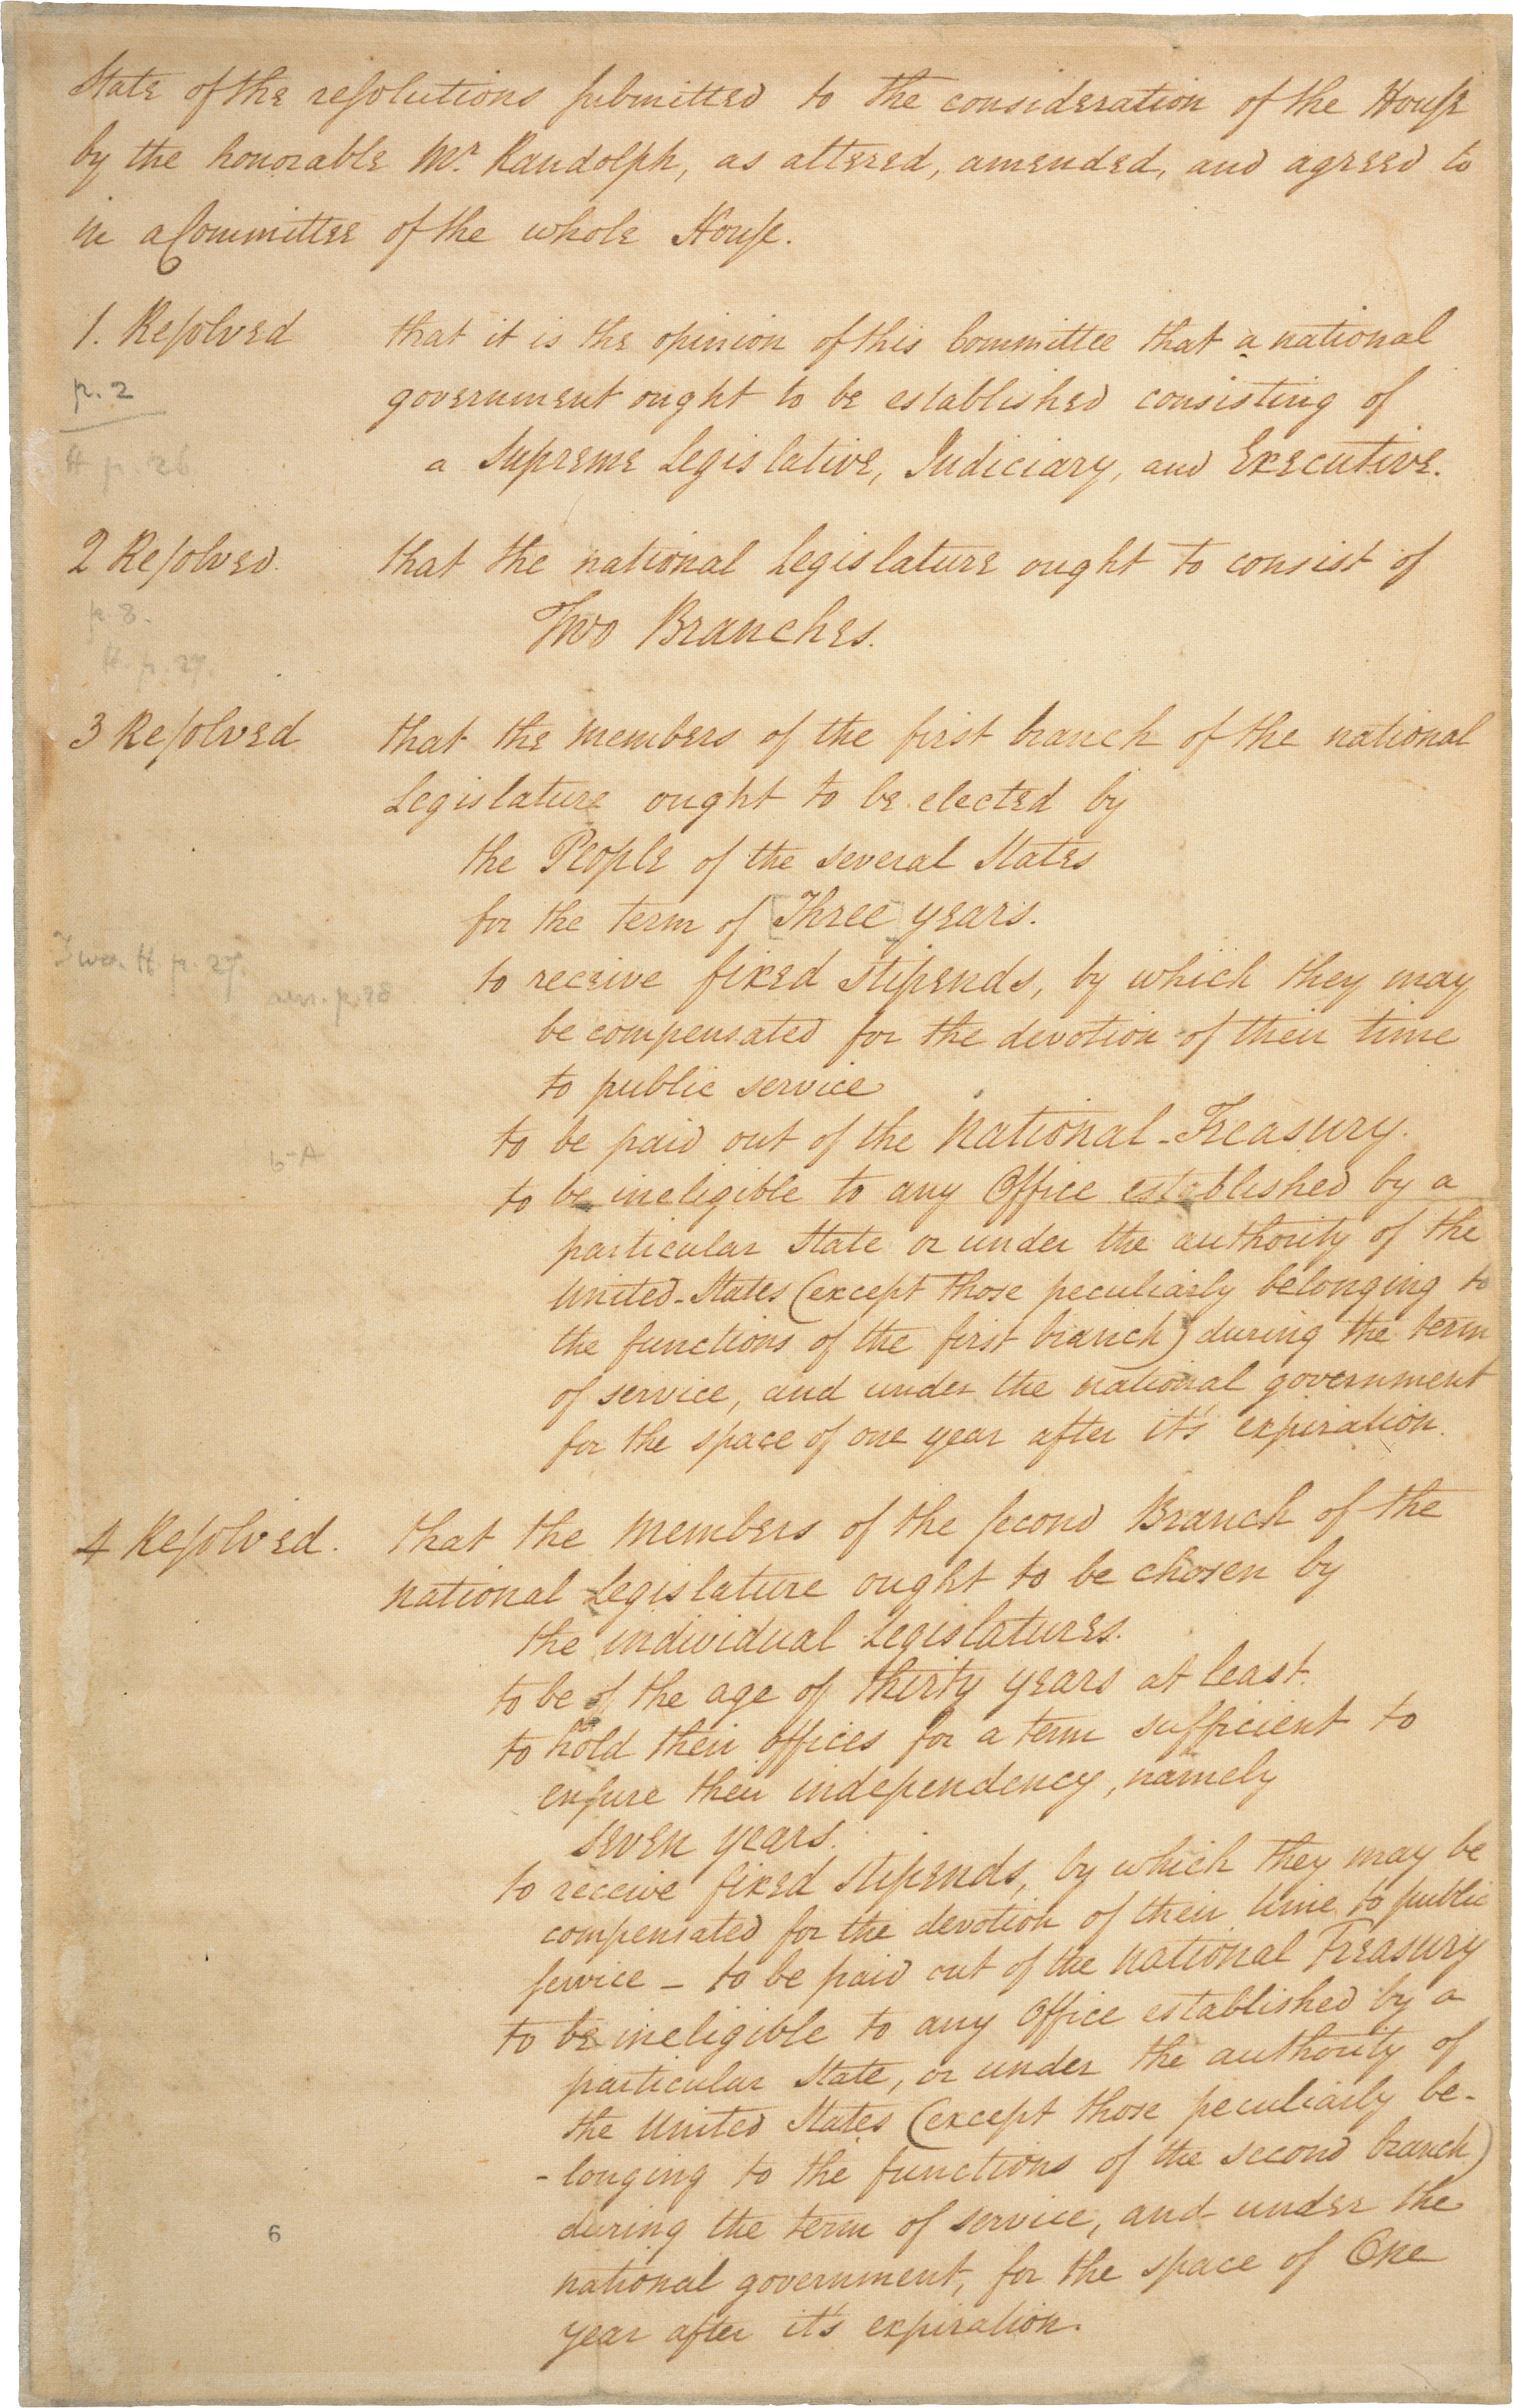 State of the resolutions submitted to the consideration of the House
by the honorable Mr. Randolph, as altered, amended, and agreed to
in a Committee of the whole House.
1. Resolved that it is the opinion of this Committee that a national
p. 2
government ought to be established consisting of
H p. 26
a Supreme Legislative, Judiciary, and Executive.
2 Resolved. that the national Legislature ought to consist of
p. 8.
Two Branches.
H. p. 27.
3 Resolved that the members of the first branch of the national
Legislature ought to be elected by
the People of the several States
for the term of [Three] years.
Two. H. p. 27.
to receive fixed stipends, by which they may
p. 28
be compensated for the devotion of their time
to public service
to be paid out of the National-Treasury.
6-A
to be ineligible to any Office established by a
particular State or under the authority of the
United-States (except those peculiarly belonging to
the functions of the first branch) during the term
of service, and under the national government
for the space of one year after it's expiration.
4 Resolved. that the Members of the second Branch of the
national Legislature ought to be chosen by
the individual Legislatures.
to be of the age of thirty years at least.
to hold their offices for a term sufficient to
ensure their independency, namely
seven years.
to receive fixed stipends, by which they may be
compensated for the devotion of their time to public
service - to be paid out of the National Treasury
to be ineligible to any Office established by a
particular State, or under the authority of
the United States (except those peculiarly be-
-longing to the functions of the second branch)
during the term of service, and under the
6
national government, for the space of One
year after it's expiration.